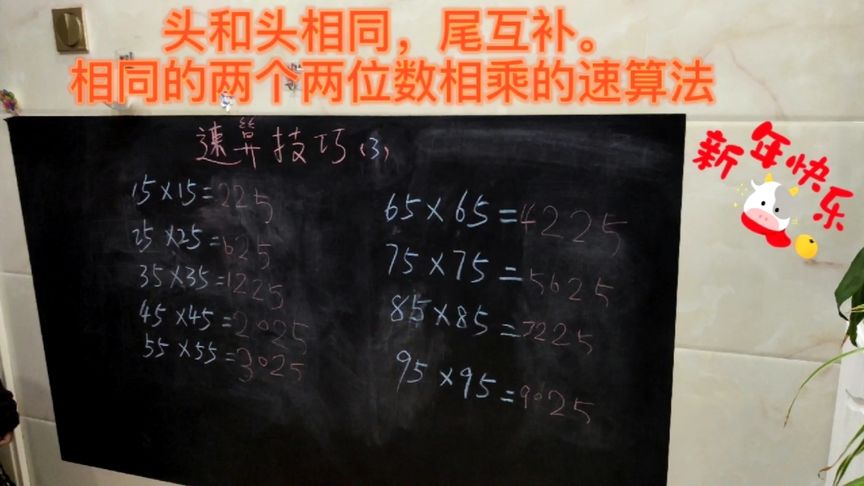 头和头相同，尾互补。
相同的两个两位数相乘的速算法
速算技巧(3)
新年快乐
15×15=225
25×25=625
35×35=1225
45×45=2025
55×55=3025
65×65=4225
75×75=5625
85×85=7225
95×95=9025